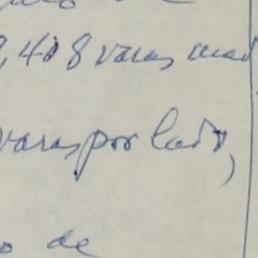 ,408 varas cuad
varas por lado,
o de